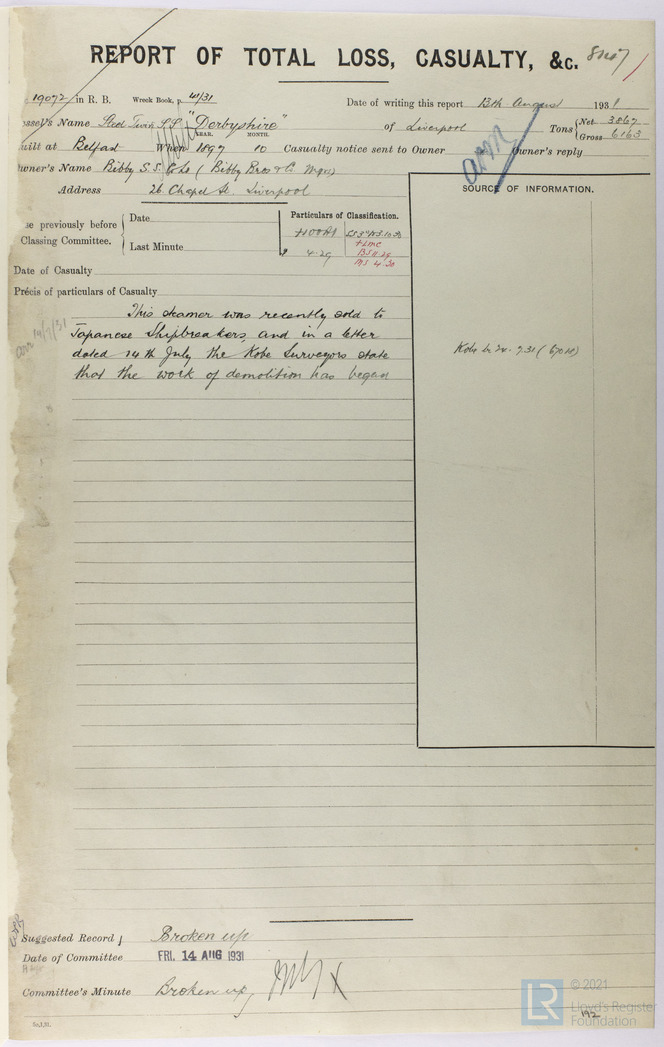 REPORT OF TOTAL LOSS, CASUALTY, &c.
19072 in R. B. Wreck Book, p. 41/31 Date of writing this report 13th August 1931.
Vessel's Name Steel Twin SS "Derbyshire" of Liverpool Tons { Net 3867 Gross 6163
Built at Belfast When 1897 10 Casualty notice sent to Owner Owner's reply
YEAR. MONTH.
Owner's Name Bibby S.S. Co Ld (Bibby Bros & Co. Mgrs)
Address 26 Chapel St. Liverpool
SOURCE OF INFORMATION.
se previously before Classing Committee. { Date
Last Minute
Particulars of Classification.
+100A1
4.29
+LMC
BS 11.29
4.30
Date of Casualty
Précis of particulars of Casualty
This steamer was recently sold to
Japanese Shipbreakers, and in a letter
dated 14th July the Kobe Surveyors state
that the work of demolition has began
14/7/31
Kobe
Suggested Record Broken up
Date of Committee FRI. 14 AUG 1931
Committee's Minute Broken up
192
LR © 2021
Lloyd's Register
Foundation